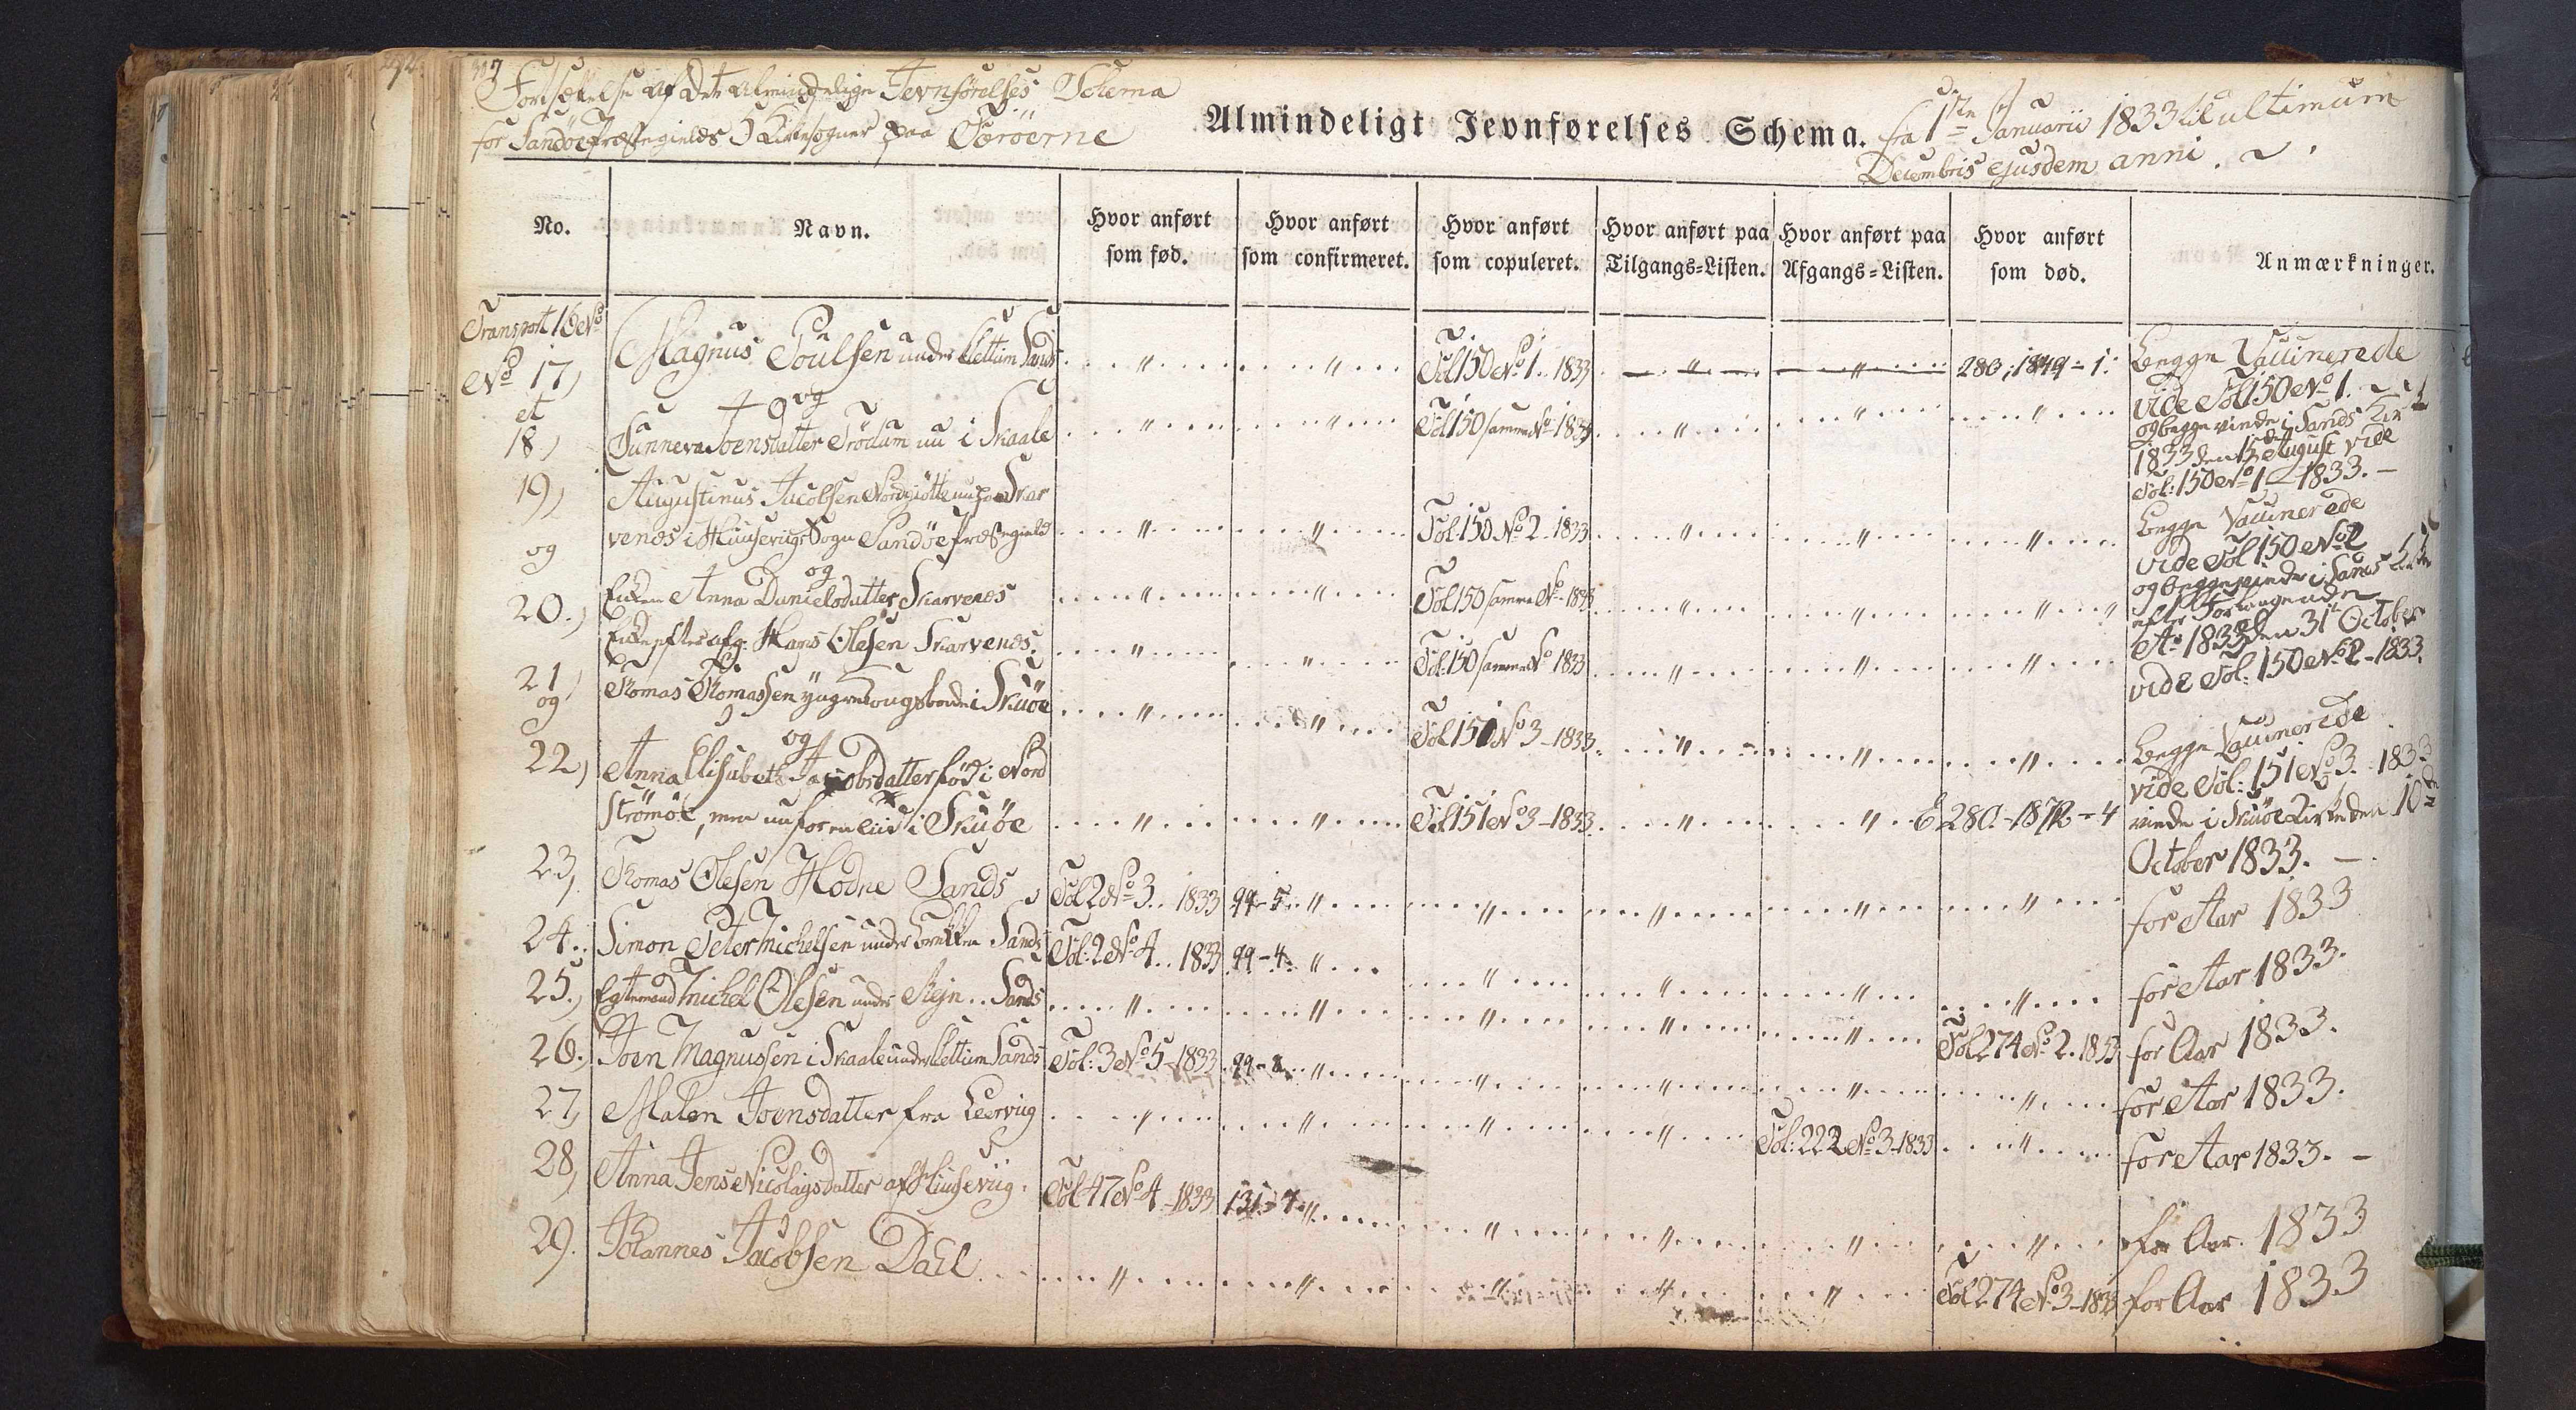 317
Fortsættelse af Det almindelige Jevnförelses Schema
for Sandöe Præstegields Kirkesogner paa Færöerne
Almindeligt Jevnførelses Schema.
fra 1ste Januarii 1833 til ultimum
Decembris ejusdem anni.
No.
Navn.
Hvor anført som fød.
Hvor anført som confirmeret.
Hvor anført som copuleret.
Hvor anført paa Tilgangs-Listen.
Hvor anført paa Afgangs-Listen.
Hvor anført som død.
Anmærkninger.
Transport 16 No
No 17) Magnus Poulsen under Klettum Sands " " Fol 150 No 1 .. 1833 " " 280; 1849 - 1. Begge Vaccinerede
et og vide Fol 150 No 1.
18) Sunneva Joensdatter Trödum nu i Skaale " " Fol 150 samme No - 1833 " " " og begge viede i Sands Kirke
1833 den 13de August vide
Fol: 150 No 1 - 1833. -
19) Augustinus Jacobsen Nordgiötte nu paa Skar
venes i Huusevigs Sogn Sandöe Præstegield " " Fol. 150 No 2 - 1833 " " " Begge Vaccinerede
og og vide Fol 150 No 2
20.) Enken Anna Danielsdatter Skarvenes " " Fol 150 samme No - 1833 " " " og begge viede i Sands Kirke
Enke efter afg. Hans Olesen Skarvenes. " " Fol. 150 samme No 1833 " " " Ao 1833 den 31te October
vide Fol: 150 No 2 - 1833.
21) Thomas Thomassen yngre Kongsbonde i Skuöe " " Fol 151 No 3 - 1833. " " " Begge Vaccinerede
og og vide Fol: 151 No 3. 1833
22) Anna Elisabeth Jacobsdatter föd i Nord
Strömöe, men nu i Skuöe " " Fol 151 No 3 - 1833 " " 280. - 1872 - 4 viede i Skuöe Kirke den 10de
October 1833. -
23) Thomas Olesen Hodne Sands Fol 2 No 3. . 1833 99 - 5. " " " " " for Aar 1833
24.. Simon Peter Michelsen under Brekken Sands Fol: 2 No 4 .. 1833 99 - 4. " " " " " for Aar 1833.
25.) Egtemand Michel Olesen under Rejn .. Sands " " " " " Fol 274 No 2. 1833 for Aar 1833.
26. Joen Magnussen i Skaale under Klettum Sands Fol: 3 No 5 - 1833 99 - 8. " " " " " for Aar 1833.
27) Malen Joensdatter fra Leervig " " " " Fol: 222 No 3 - 1833 " for Aar 1833. -
28) Anna Jens Nicolaysdatter af Huusevig. Fol 47 No 4 - 1833 131 - 7. " " " " " for Aar. 1833
29. Johannes Jacobsen Dahl " " " " " Fol 274 No 3 - 1833 for Aar 1833